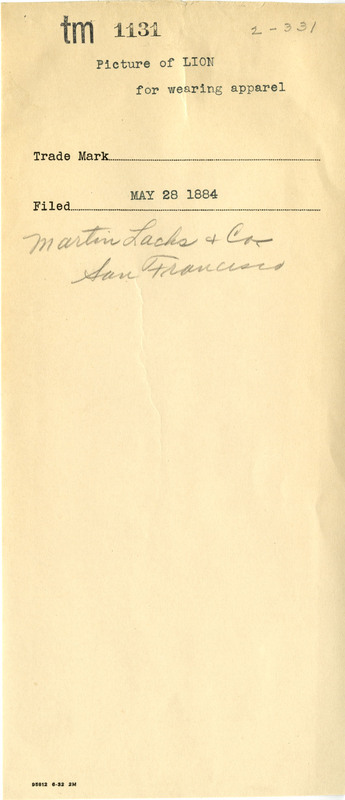 tm 1131 2-331
Picture of LION
for wearing apparel
Trade Mark
Filed MAY 28 1884
Martin Lachs & Co
San Francisco
95912 6-32 2M